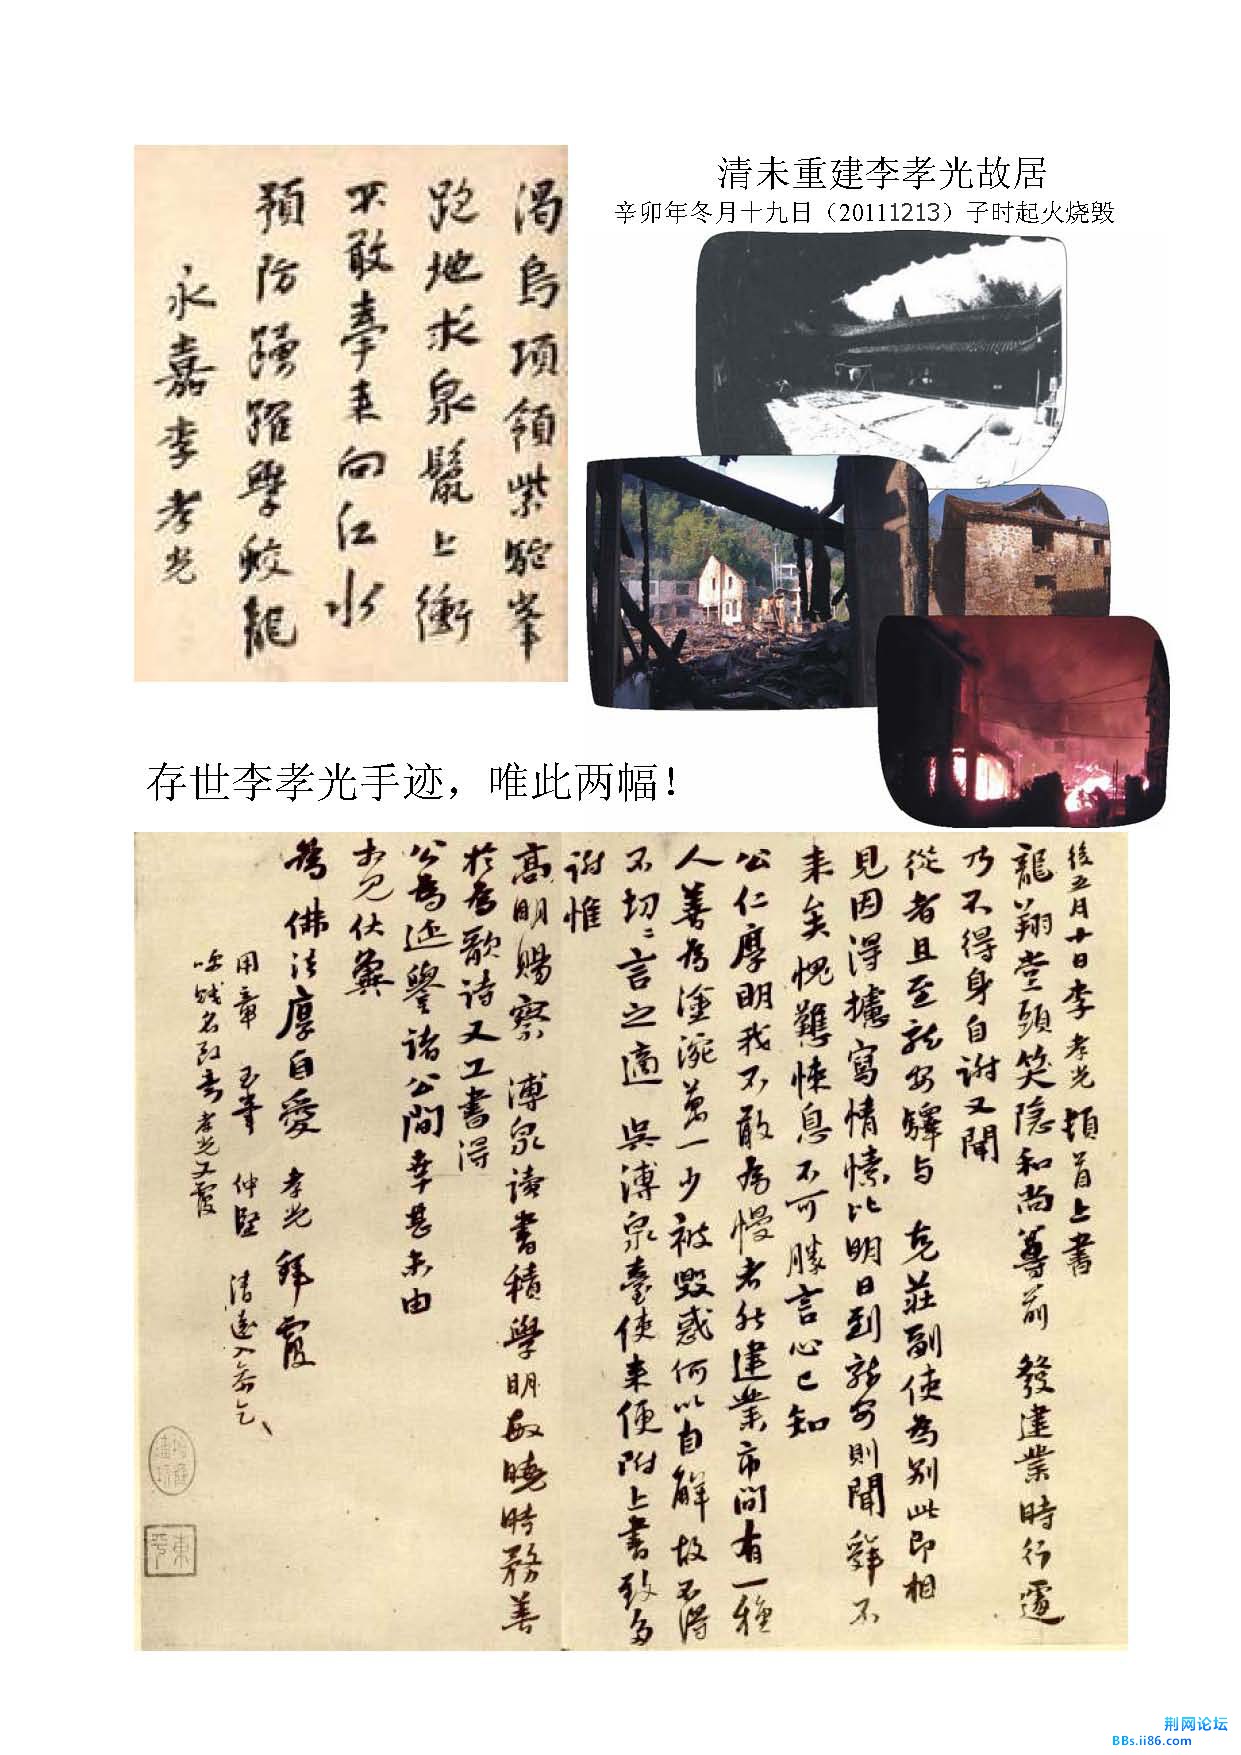 清未重建李孝光故居
辛卯年冬月十九日（20111213）子时起火烧毁
渴烏項領紫駝峯
跑地求泉鬣上衝
不敢牽来向江水
預防踴躍學蛟龍
永嘉李孝光
存世李孝光手迹，唯此两幅！
後五月十日李孝光頓首上書
龍翔堂頭笑隐和尚尊前 發建業時行遽
乃不得身自謝又聞
從者且至龍安驛与 克莊副使為别此即相
見因得攄寫情愫比明日到龍安則聞舜不
来矣愧難悚息不可勝言心已知
公仁厚明我不敢為慢者然建業市間有一種
人善為塗涴萬一少被毀惑何以自解故不得
不切〻言之適 吳溥泉臺使来便附上書致多
謝惟
高明賜察 溥泉讀書積學明敏曉時務善
於為歌詩又工書得
公為延譽諸公間幸甚未由
相見伏冀
為佛法厚自愛 孝光拜覆
用章 玉峯 仲堅 清遠
名 孝光又覆
荆网论坛
BBs.ii86.com